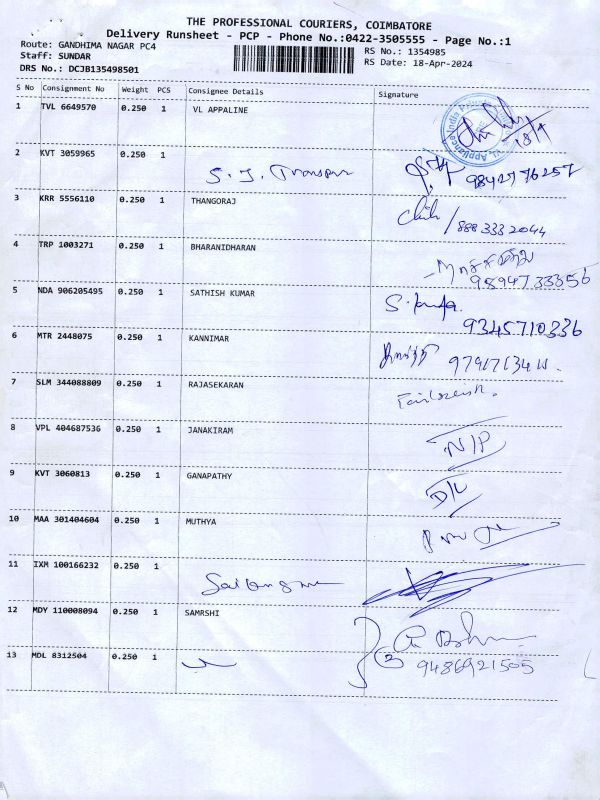 THE PROFESSIONAL COURIERS, COIMBATORE
Delivery Runsheet - PCP - Phone No.:0422-3505555 - Page No.:1
Route: GANDHIMA NAGAR PC4 RS No.: 1354985
Staff: SUNDAR RS Date: 18-Apr-2024
DRS No.: DCJB135498501
S No Consignment No Weight PCS Consignee Details Signature
1 TVL 6649570 0.250 1 VL APPALINE
18/4
2 KVT 3059965 0.250 1 S. J. 9842776257
3 KRR 5556110 0.250 1 THANGORAJ /888 333 2044
4 TRP 1003271 0.250 1 BHARANIDHARAN
9894733356
5 NDA 906205495 0.250 1 SATHISH KUMAR
9345710336
6 MTR 2448075 0.250 1 KANNIMAR
7 SLM 344088809 0.250 1 RAJASEKARAN
8 VPL 404687536 0.250 1 JANAKIRAM N/P
9 KVT 3060813 0.250 1 GANAPATHY D/L
10 MAA 301404604 0.250 1 MUTHYA
11 IXM 100166232 0.250 1
12 MDY 110008094 0.250 1 SAMRSHI
13 MDL 8312504 0.250 1 9486921505